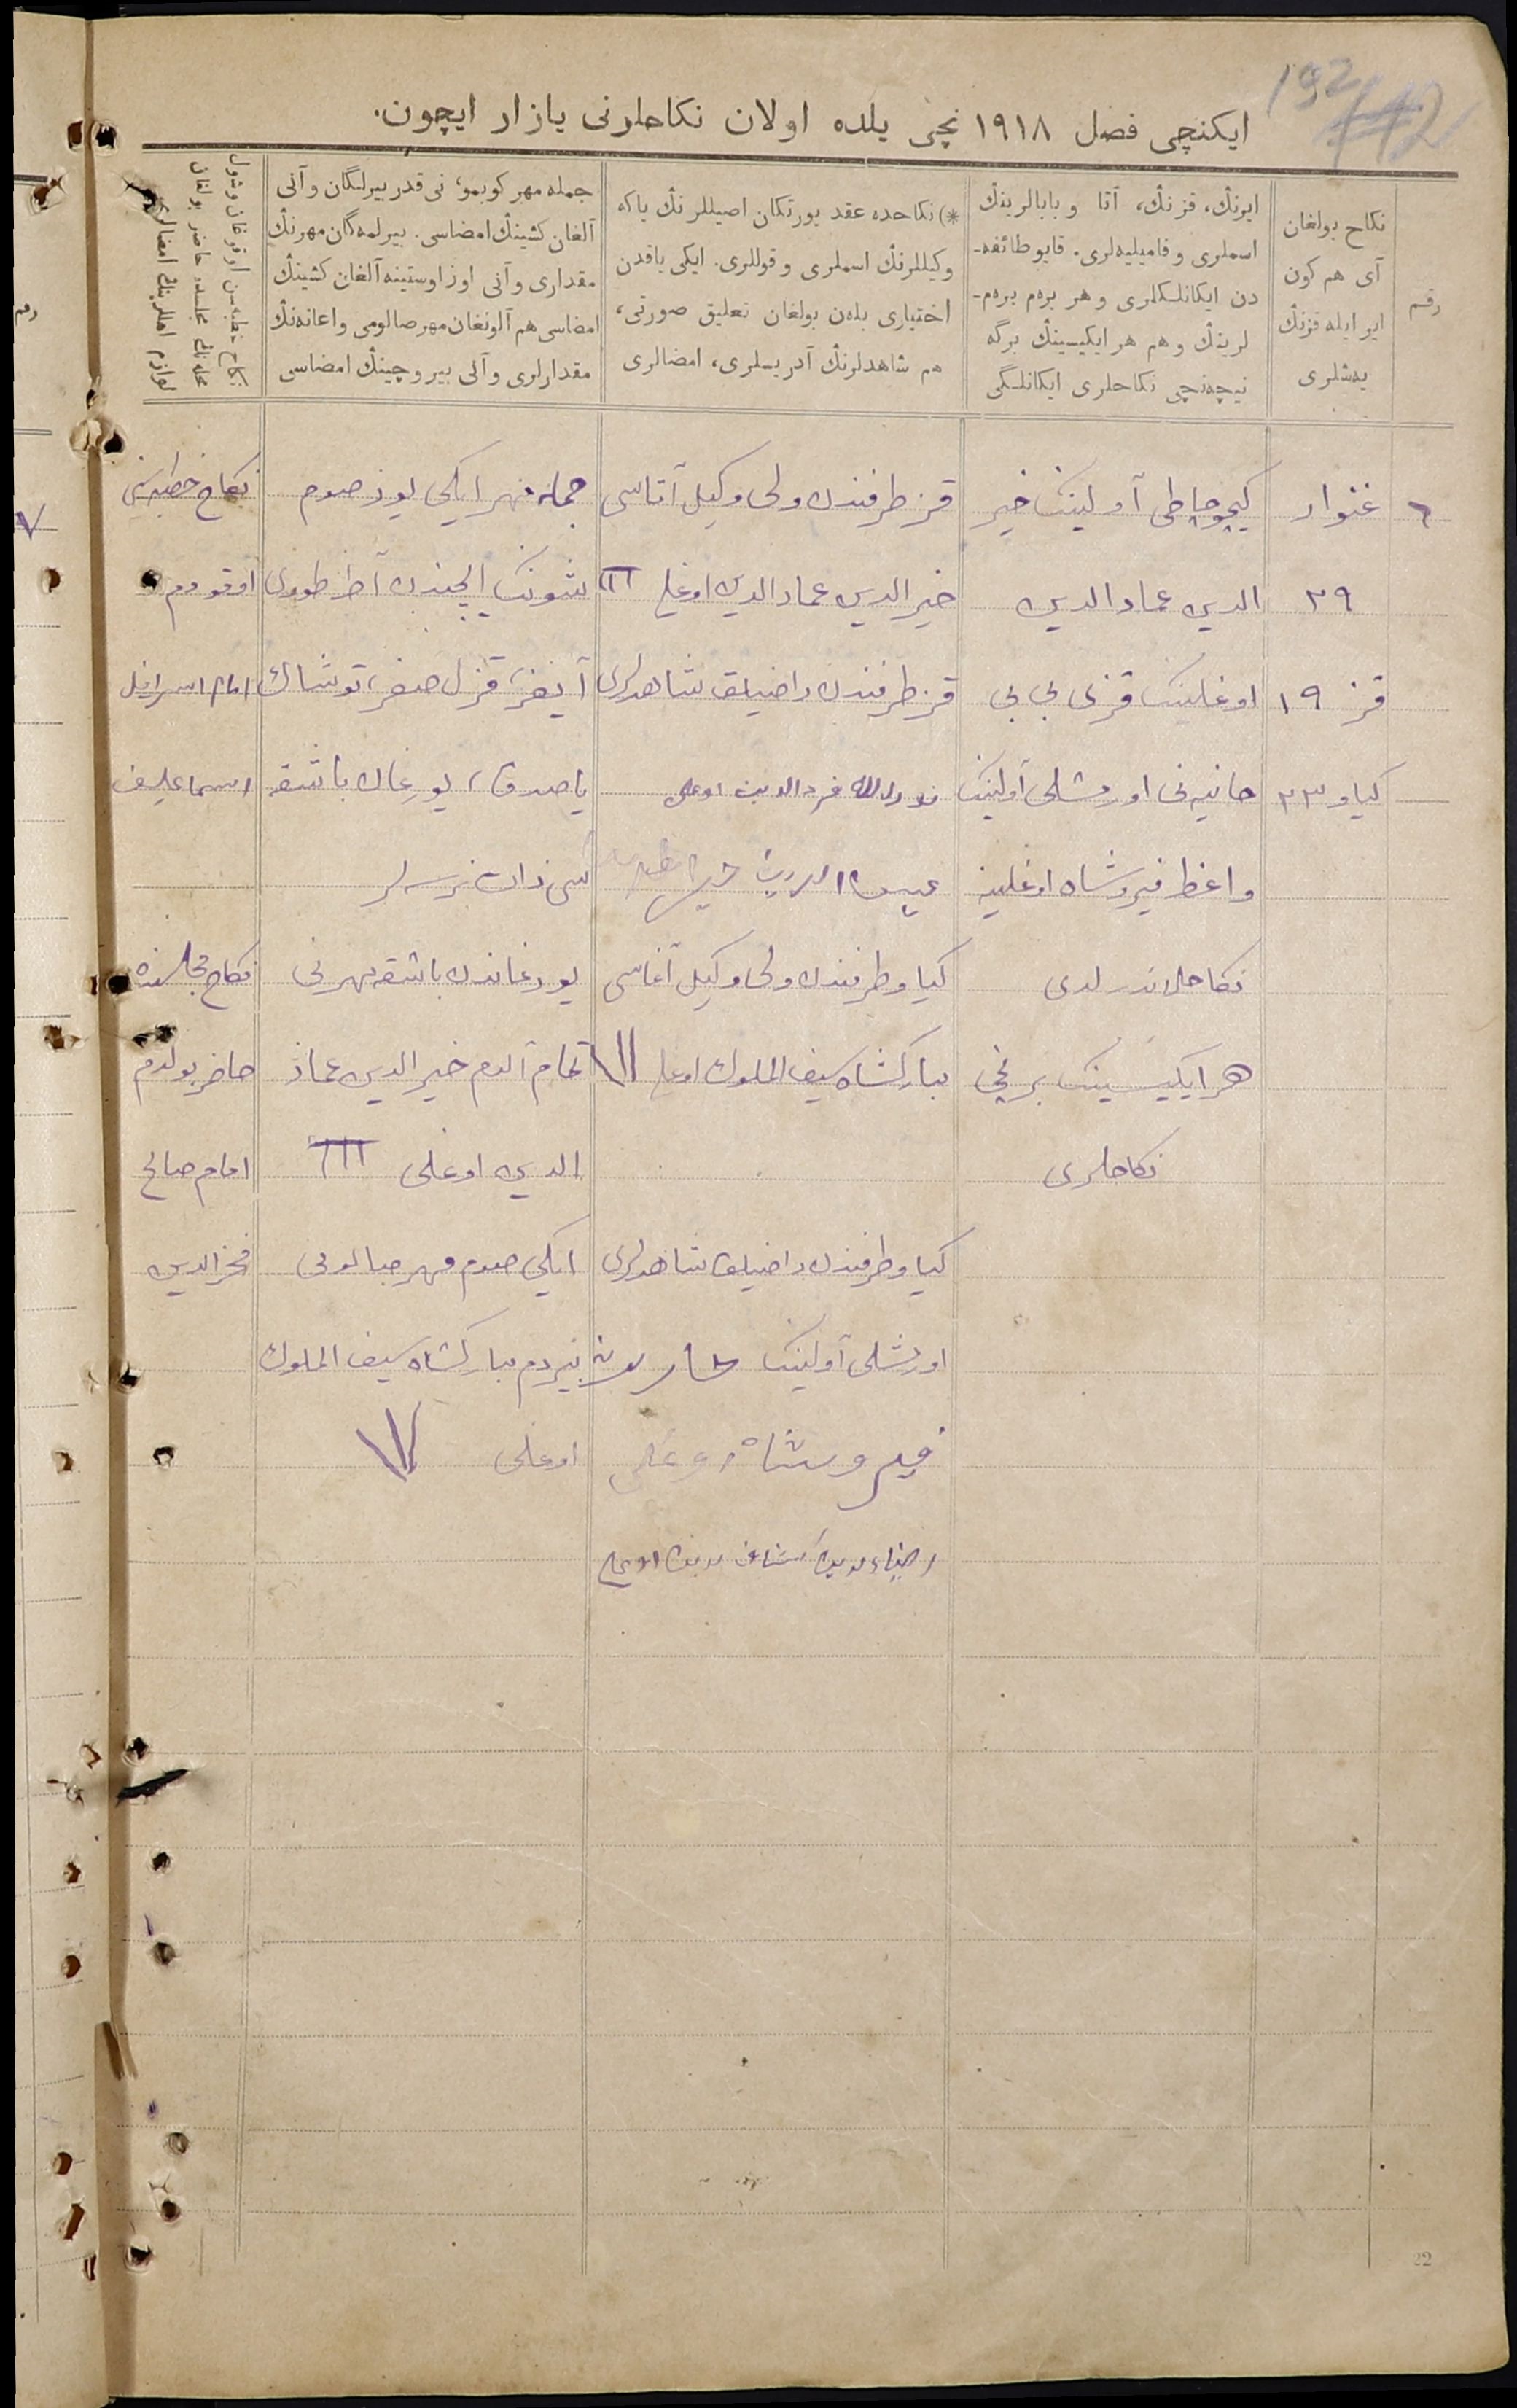 192
ایکنچی فصل ١٩١٨ نچی یلده اولان نکاحلرنی یازار ایچون.
رقم
نکاح بولغان
آی هم کون
ایر ایله قزنڭ
یەشلری
ایرنڭ، قزنڭ، آتا و بابالرینڭ
اسملری و فامیلیه‌لری. قایو طائفه‌-
دن ایکانلکلری و هر برەم برەم-
لرینڭ و هم هر ایکیسینڭ برگه
نیچەنچی نکاحلری ایکانلگی
*) نکاحده عقد یورتکان اصیللرنڭ یاکه
وکیللرنڭ اسملری و قوللری. ایکی یاقدن
اختیاری بلەن بولغان تعلیق صورتی،
هم شاهدلرنڭ آدرسلری، امضالری
جمله مهر کوبمو، نی قدر بیرلگان و آنی
آلغان کشینڭ امضاسی. بیرلمه‌گان مهرنڭ
مقداری و آنی اوز اوستینه آلغان کشینڭ
امضاسی هم آلونغان مهر صالومی و اعانه‌نڭ
مقدارلری و آلی بیروچینڭ امضاسی
نکاح خطبه‌سن اوقوغان وشول
محله‌نڭ مجلسده حاضر بولغان
لوازم اهللرینڭ امضالری
٦
غنوار
٢٩
قز ١٩
کیاو ٢٣
کیچو چاطی آولینڭ خیر
الدین عمادالدین
اوغلینڭ قزی بی بی
حانیه‌نی اورشلی آولینڭ
واعظ فیروشاه اوغلینه
نکاحلاندرلدی
هر ایکیسینڭ برنچی
نکاحلری
قز طرفندن ولی وکیل آتاسی
خیرالدین عمادالدین اوغلی
قز طرفندن راضیلق شاهدلری
کیاو طرفندن ولی وکیل آغاسی
مبارکشاه سیف الملوک اوغلی
کیاو طرفندن راضیلق شاهدلری
اورشلی آولینڭ
فیروشاه اوغلی
جمله مهر ایکی یوز صوم
شونڭ ایچندن آط طوون
آیغر، قزل صغر، توشاک
یاصدق، یورغان باشقه
یورغاندن باشقه مهرنی
تمام آلدم خیرالدین عماد
الدین اوغلی
ایکی صوم مهر صالومی
بیردم مبارکشاه سیف الملوک
اوغلی
نکاح خطبه‌سن
اوقودم
امام اسرافیل
اسماعیلف
نکاح مجلسنده
حاضر بولدم
امام صالح
فخرالدین
22